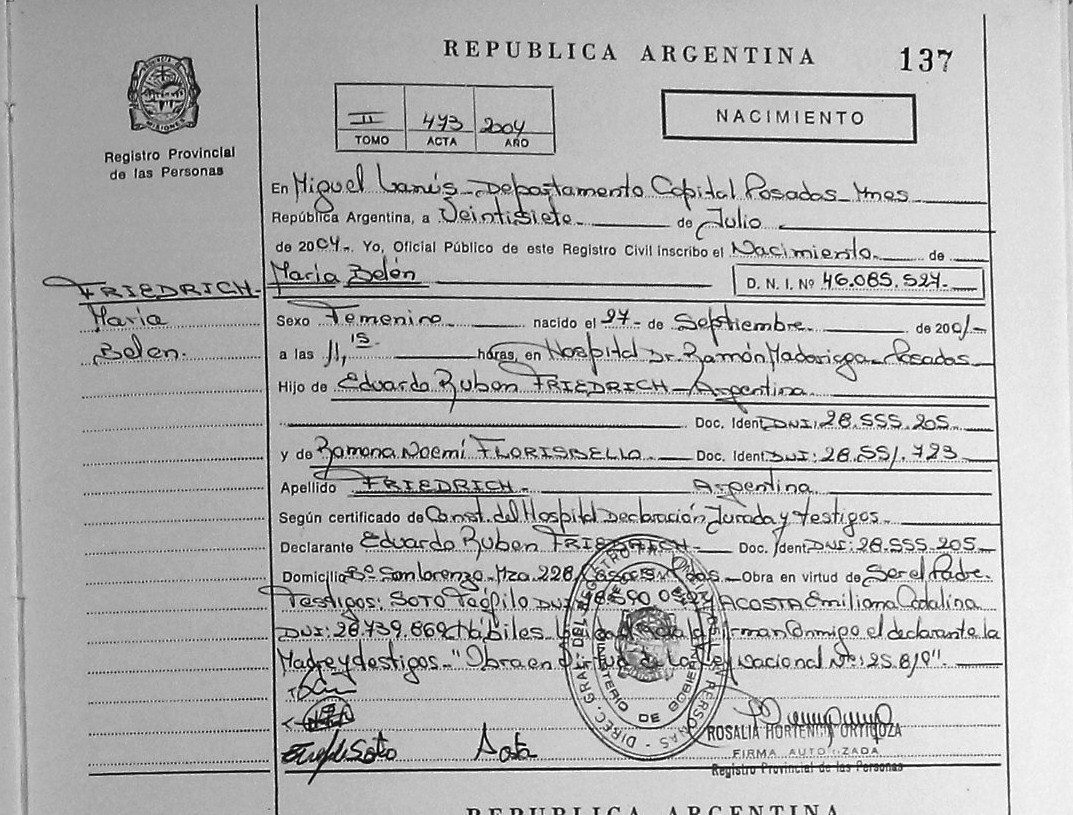 REPUBLICA ARGENTINA 137
PROVINCIA DE
MISIONES
Registro Provincial
de las Personas
II 473 2004
TOMO ACTA AÑO
NACIMIENTO
En Miguel Lanús - Departamento Capital Posadas Mnes
República Argentina, a Veintisiete de Julio
de 2004.- Yo, Oficial Público de este Registro Civil inscribo el Nacimiento de
María Belén D. N. I. Nº 46.085.527.-
FRIEDRICH
María
Belén.
Sexo Femenino nacido el 27- de Septiembre de 2001-
a las 11,15 horas, en Hospital Dr. Ramón Madariaga - Posadas
Hijo de Eduardo Ruben FRIEDRICH - Argentina
Doc. Ident DNI: 28.555.205
y de Ramona Noemí FLORISBELLO Doc. Ident DNI: 28.551.723
Apellido FRIEDRICH - Argentina
Según certificado de Const. del Hospital Declaración Jurada y testigos.
Declarante Eduardo Ruben FRIEDRICH - Doc. Ident DNI: 28.555.205
Domicilia Bº San Lorenzo - Mza 228 Casa 5 - Obra en virtud de Ser el Padre.
Testigos: SOTO Teófilo DNI ACOSTA Emiliana Catalina
DNI: 28.739.869 Hábiles firman Conmigo el declarante la
Madre y testigos - "Obra en Virtud de la Ley Nacional Nº: 25.819".
Soto Acosta
DIREC. GRAL. DEL REGISTRO PERSONAS
MINISTERIO DE GOBIERNO
ROSALIA HORTENCIA ORTIGOZA
FIRMA AUTORIZADA
Registro Provincial de las Personas
REPUBLICA ARGENTINA